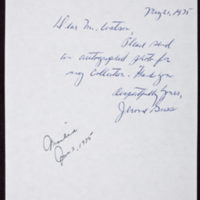 May 21, 1975
Dear Mr. Watson,
Please send
an autographed photo for
my collection. Thank you
Respectfully yours,
Jerome
June 2, 1975